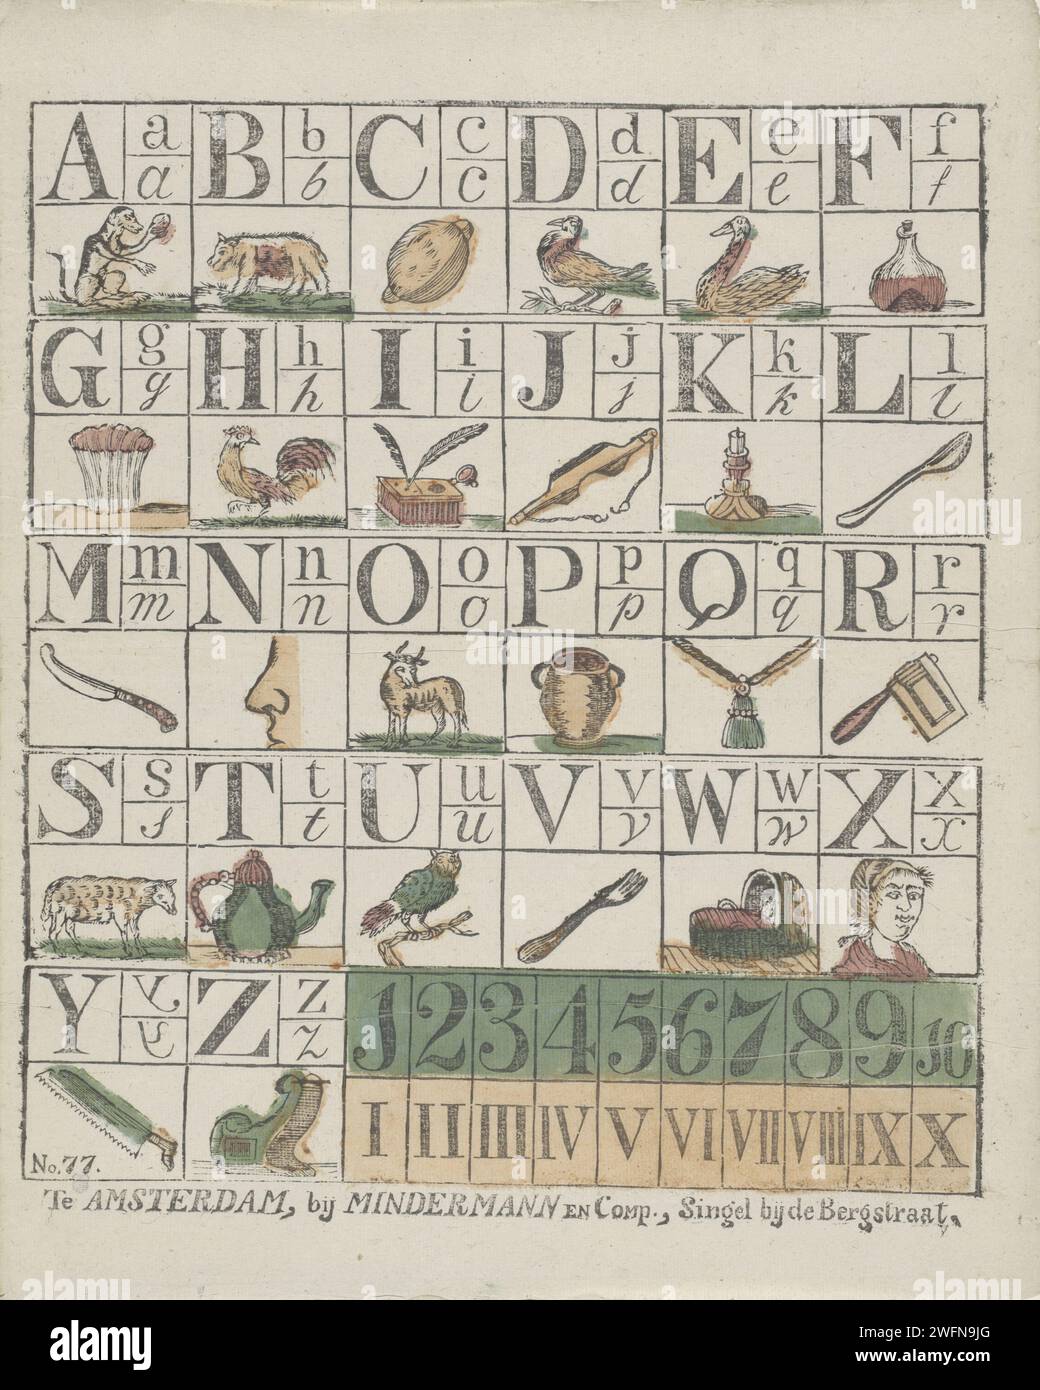 A a B b C c D d E e F f
a b c d e f
G g H h I i J j K k L l
g h i j k l
M m N n O o P p Q q R r
m n o p q r
S s T t U u V v W w X x
s t u v w x
Y y Z z 1 2 3 4 5 6 7 8 9 10
y z
I II III IV V VI VII VIII IX X
No. 77.
Te AMSTERDAM, bij MINDERMANN EN Comp., Singel bij de Bergstraat,
alamy
Image ID: 2WFN9JG
www.alamy.com